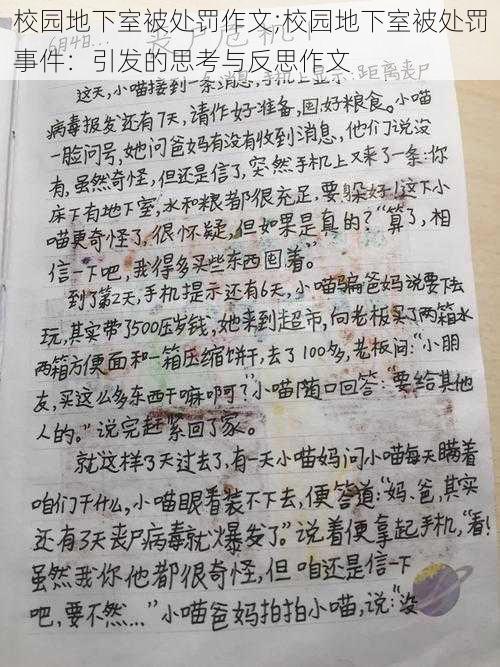 校园地下室被处罚作文;校园地下室被处罚
事件：引发的思考与反思作文
6月4日…
丧尸危机
这天,小喵接到一条消息,手机上显示:距离丧尸
病毒报发还有7天,请作好准备,囤好粮食。小喵
一脸问号,她问爸妈有没有收到消息,他们说没
有,虽然奇怪,但还是信了,突然手机上又来了一条:你
床下有地下室,水和粮都很充足,要躲好!这下小
喵更奇怪了,很怀疑,但如果是真的?“算了,相
信一下吧,我得多买些东西囤着。”
到了第2天,手机提示还有6天,小喵骗爸妈说要下去
玩,其实带了500压岁钱,她来到超市,向老板买了两箱水
两箱方便面和一箱压缩饼干,去了100多,老板问:“小朋
友,买这么多东西干嘛啊?”小喵随口回答:“要给其他
人的。”说完赶紧回了家。
就这样3天过去了,有一天小喵妈问小喵每天瞒着
咱们干什么,小喵眼看装不下去,便答道:“妈、爸,其实
还有3天丧尸病毒就爆发了。”说着便拿起手机,“看!
虽然我你他都很奇怪,但咱还是信一下
吧,要不然…”小喵爸妈拍拍小喵,说:“没